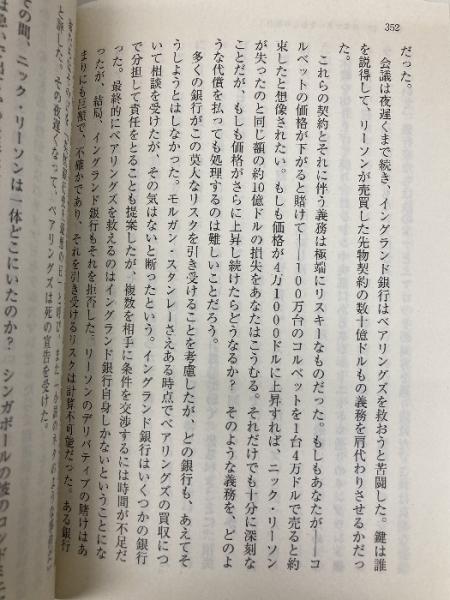 352
だった。
会議は夜遅くまで続き、イングランド銀行はベアリングズを救おうと苦闘した。鍵は誰
を説得して、リーソンが売買した先物契約の数十億ドルもの義務を肩代わりさせるかだっ
た。
これらの契約とそれに伴う義務は極端にリスキーなものだった。もしもあなたが——コ
ルベットの価格が下がると賭けて——100万台のコルベットを1台4万ドルで売ると約
束したと想像されたい。もしも価格が4万1000ドルに上昇すれば、ニック・リーソン
が失ったのと同じ額の約10億ドルの損失をあなたはこうむる。それだけでも十分に深刻な
ことだが、もしも価格がさらに上昇し続けたらどうなるか？ そのような義務を、どのよ
うな代償を払っても処理するのは難しいことだろう。
多くの銀行がこの莫大なリスクを引き受けることを考慮したが、どの銀行も、あえてそ
うしようとはしなかった。モルガン・スタンレーさえある時点でベアリングズの買収につ
いて相談を受けたが、その気はないと断ったという。イングランド銀行はいくつかの銀行
で分担して責任をとることも提案したが、複数を相手に条件を交渉するには時間が不足だ
った。最終的にベアリングズを救えるのはイングランド銀行自身しかないということにな
ったが、結局、イングランド銀行もそれを拒否した。リーソンのデリバティブの賭けはあ
まりにも巨額で、不確かであり、それを引き受けるリスクは計算不可能だった。ある銀行
と評した。その夜遅くなって、ベアリングズは死の宣告を受けた。
その間、ニック・リーソンは一体どこにいたのか？ シンガポールの彼のコンドミニ